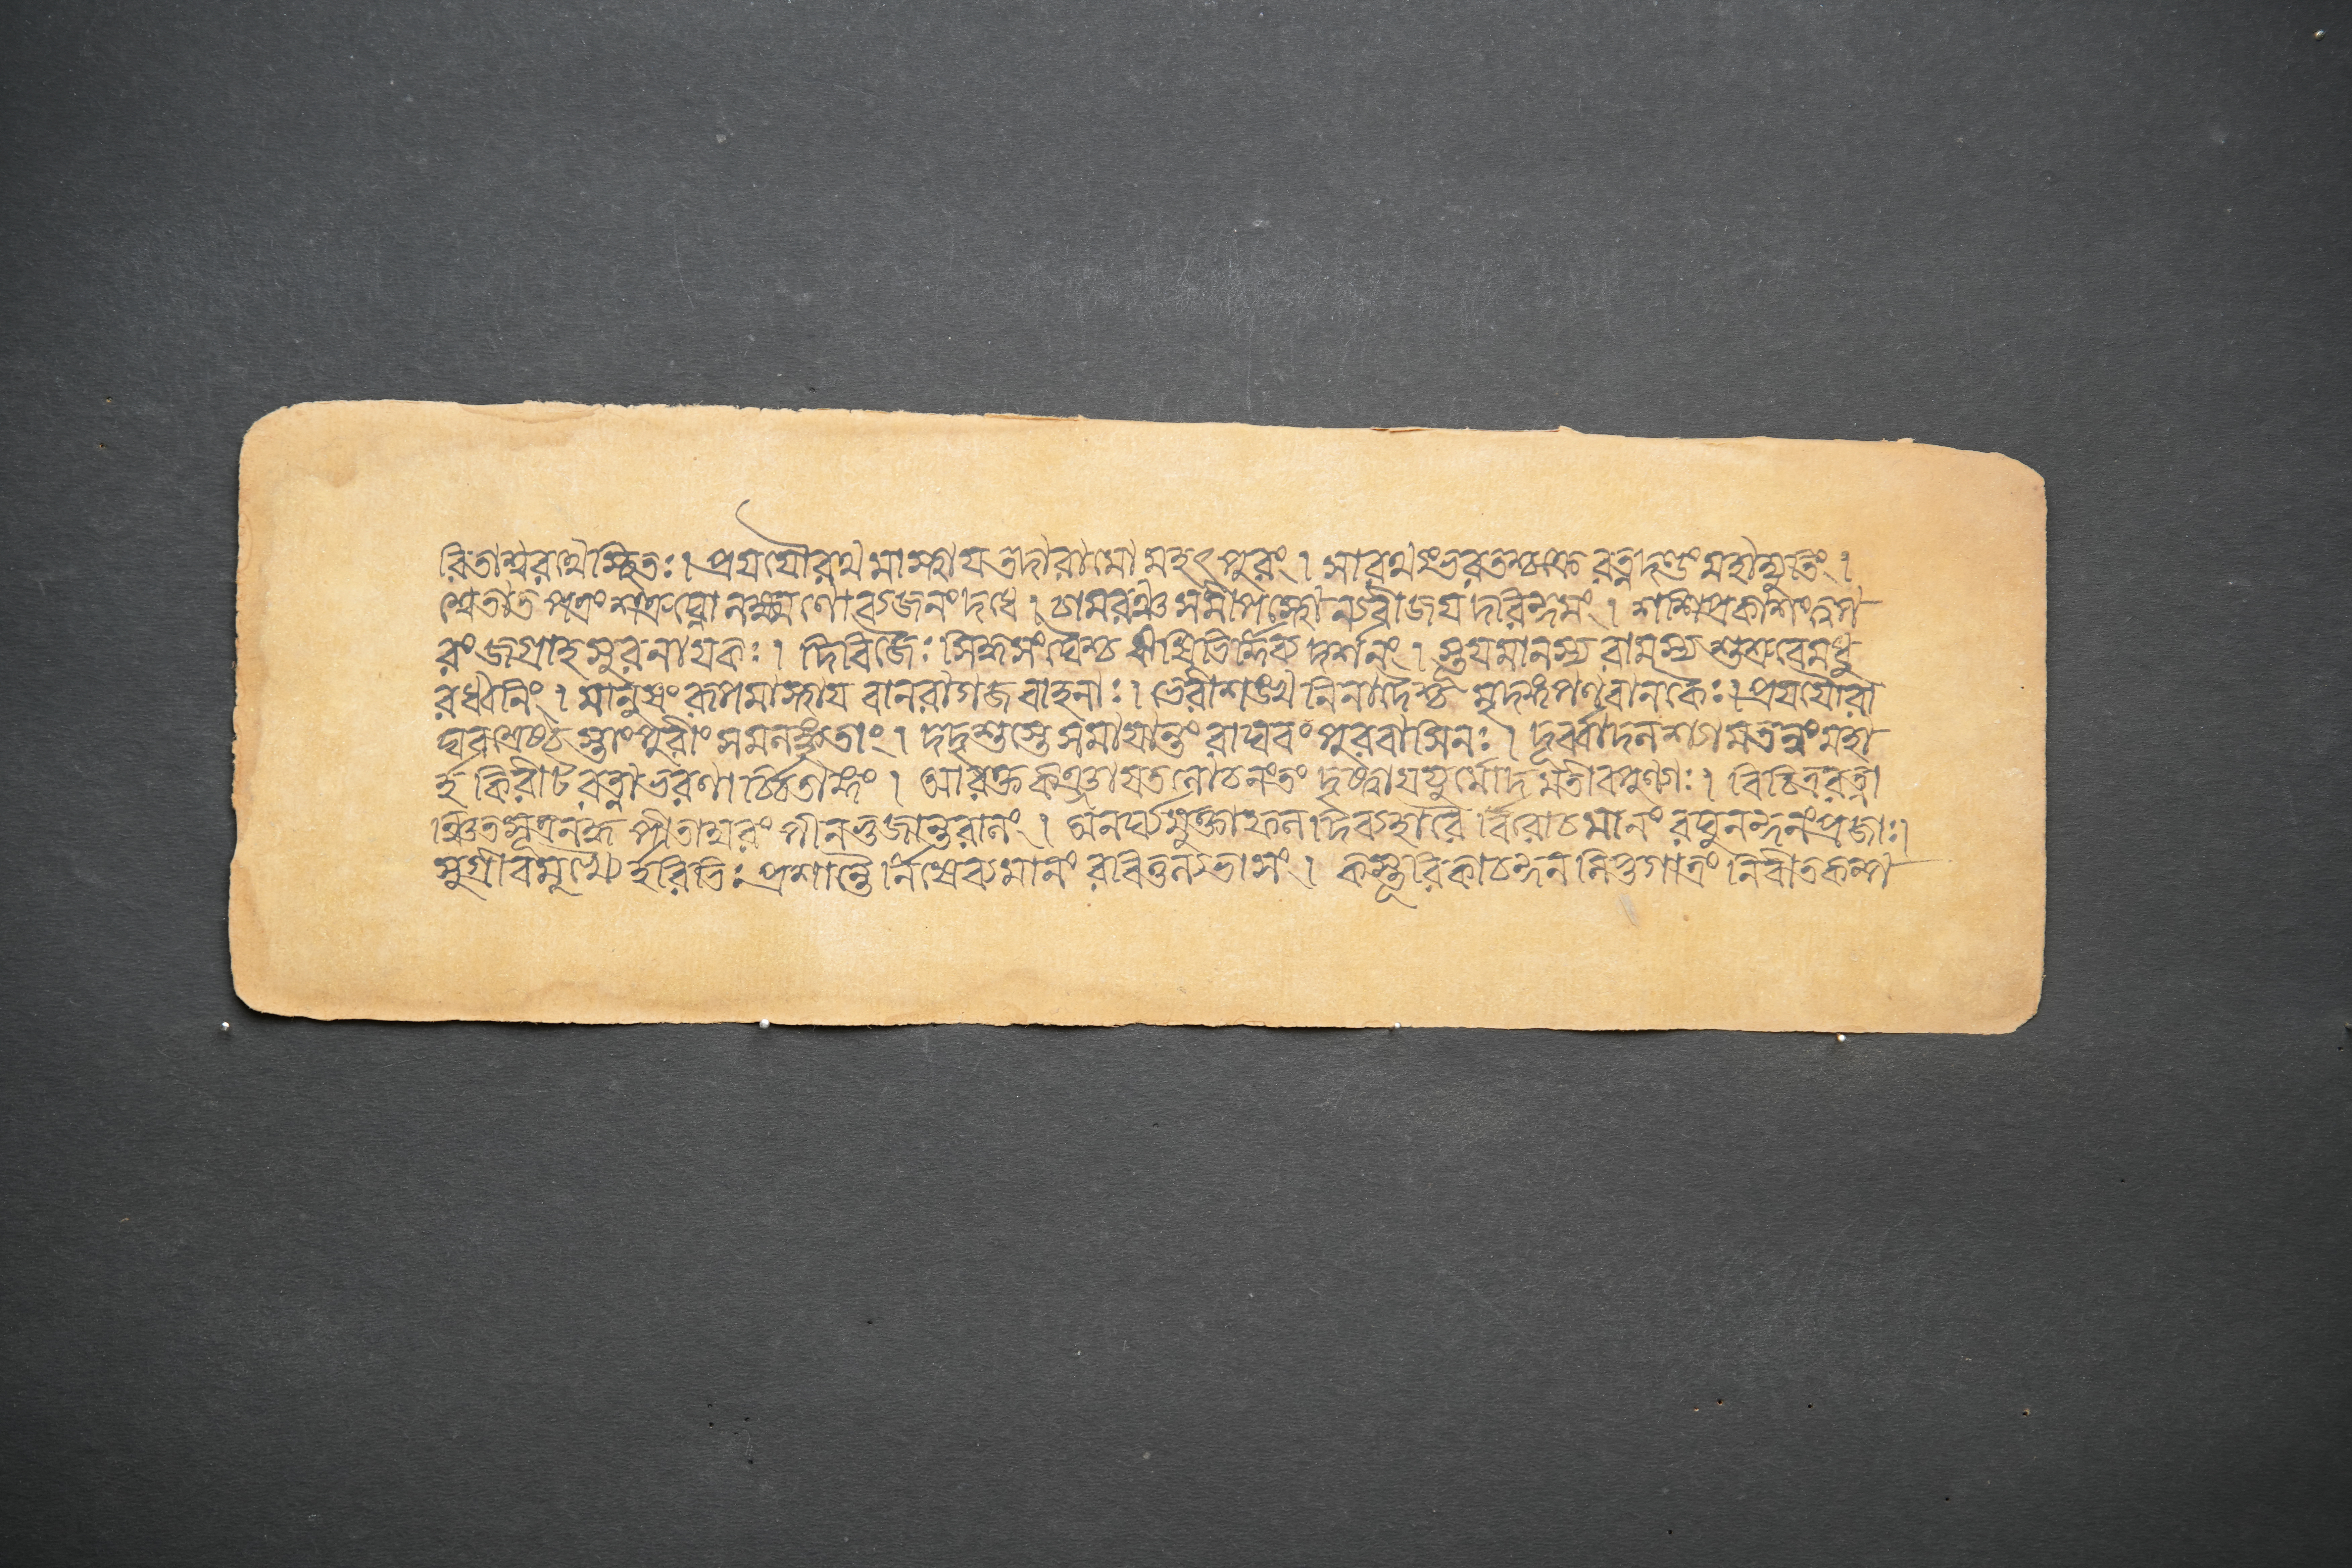 রিতাশ্বরথেস্থিতঃ। প্রযযৌরথমাস্থায তদারামো মহৎপুরং। সারথ্যংভরতশ্চক্রে রত্নদণ্ডং মহাদ্যুতিং।
শ্বেতাতপত্রং শত্রুঘ্নো লক্ষ্মণো ব্যজনং দধে। চামরঞ্চ সমীপস্থো ন্যবীজযদরিন্দমং। শশিপ্রকাশং ত্বপ
রং জগ্রাহ সুরনাযকঃ। দিবিজৈঃ সিদ্ধসংঘৈশ্চ ঋষিভির্দিব্যদর্শনং। স্তূযমানস্য রামস্য শুশ্রুবেমধু
রধ্বনিং। মানুষং রূপমাস্থায বানরাগজবাহনাঃ। ভেরীশঙ্খনিনাদৈশ্চ মৃদঙ্গপণবানকৈঃ। প্রযযৌরা
ঘবশ্রেষ্ঠস্তাংপুরীং সমলঙ্কৃতাং। দদৃশুস্তে সমাযান্তং রাঘবং পুরবাসিনঃ। দূর্ব্বাদলশ্যামতনুং মহা
র্হকিরীটরত্নাভরণাঞ্চিতাঙ্গং। আরক্তকঞ্জাযতলোচনংতং দৃষ্ট্বাযযুর্মোদমতীবপুণ্যাঃ। বিচিত্ররত্না
ঞ্চিতসূত্রনদ্ধ পীতাম্বরং পীনভুজান্তরালং। অনর্ঘ্যমুক্তাফলদিব্যহারৈর্বিরোচমানং রঘুনন্দনংপ্রজাঃ।
সুগ্রীবমুখ্যৈর্হরিভিঃ প্রশান্তৈর্নিষেব্যমানং রবিতুল্যভাসং। কস্তূরিকাচন্দনলিপ্তগাত্রং নিবীতকল্প